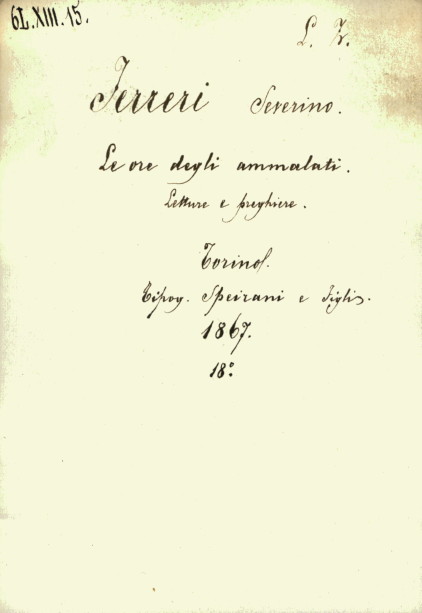 6L.XIII.15.
Ferreri Severino.
Le ore degli ammalati.
Letture e preghiere.
Torino.
Tipog. Speirani e figli.
1867.
18°.